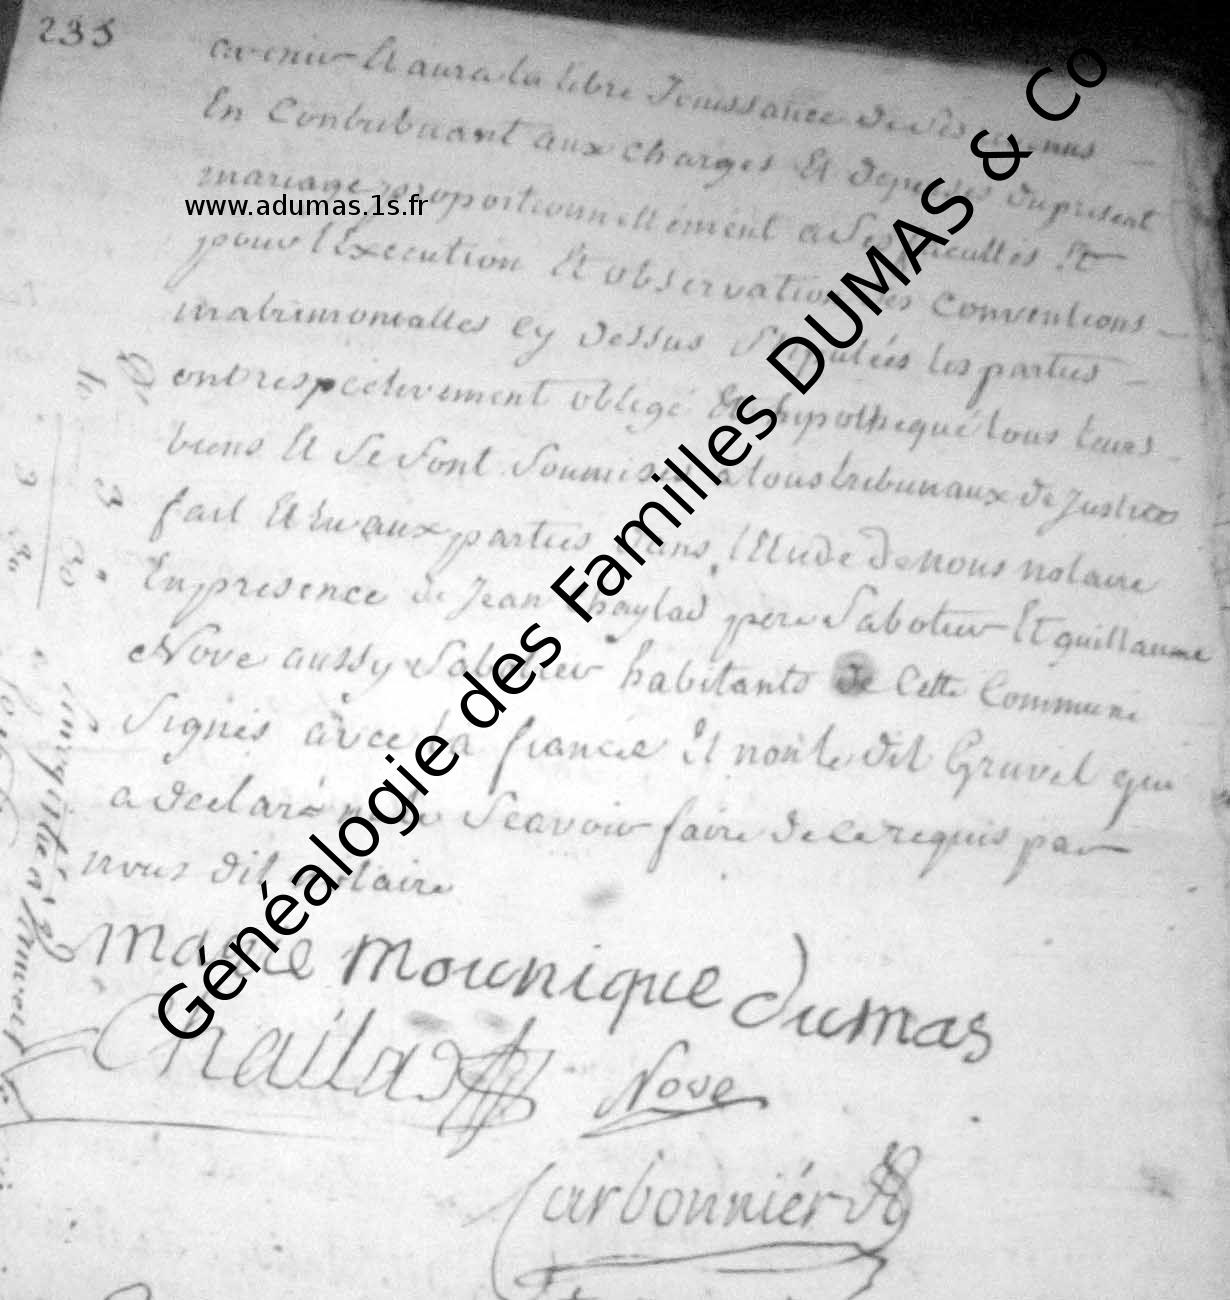 235
avenir Et aura la libre Jouissance de Ses
En Contribuant aux charges Et depenses du present
mariage proportionnellement a Ses facultés Et
pour l'Execution Et observation des Conventions
matrimonialles cy dessus Stipulées les parties
ont respectivement obligé Et hypothequé tous leurs
biens Et Se Sont Soumises a tous tribunaux de Justice
fait Et lu aux parties dans l'Etude de nous notaire
En presence de Jean Chaylad pere Saboteur Et guillaume
Nove aussy Sabotier habitants de Cette Commune
Signés avec la fiancée Et non le dit Gruvel qui
a declaré ne le Scavoir faire de ce requis par
nous dit notaire
www.adumas.1s.fr
Généalogie des Familles DUMAS & Co
marie mounique dumas
Chailad
Nove
Carbonniér